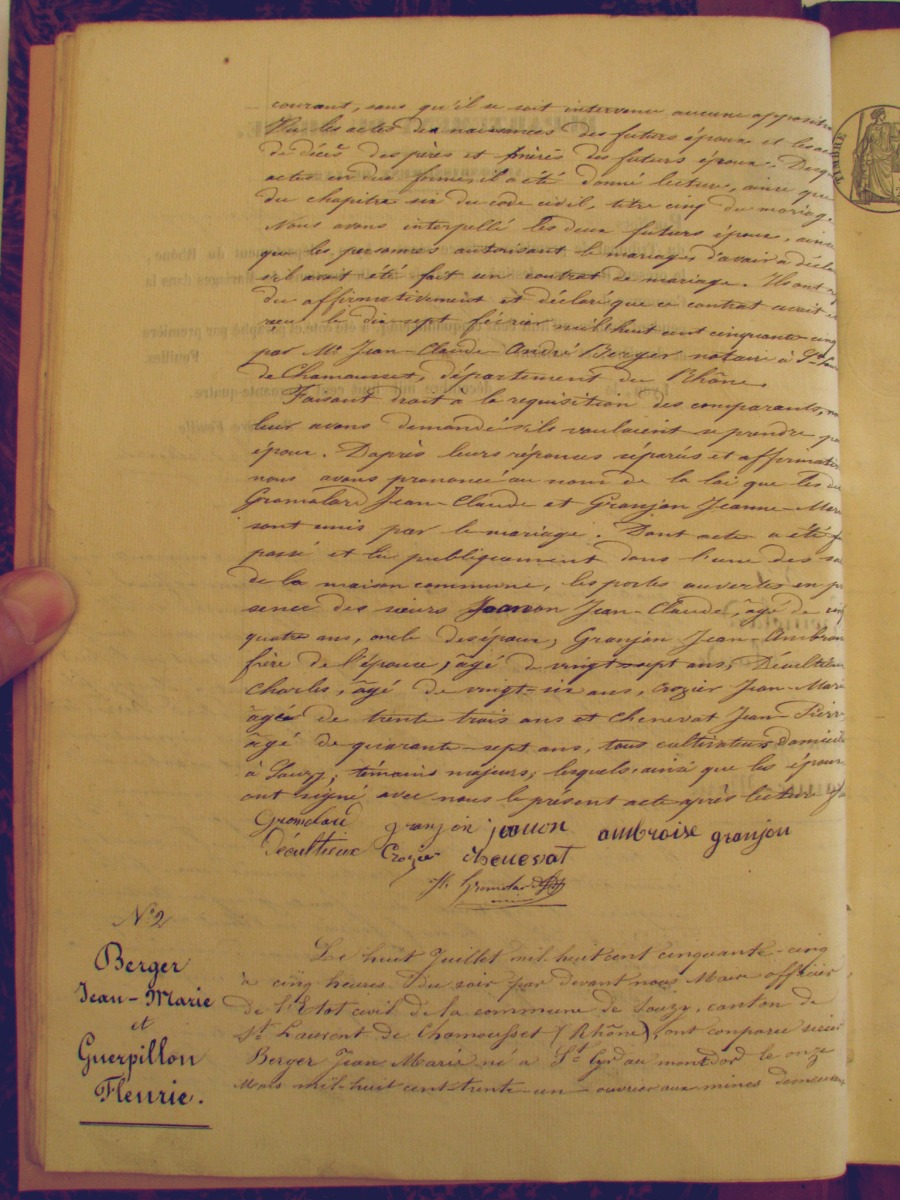 courant, sans qu'il se soit intervenu aucune opposition
Vu les actes de naissances des futurs époux et les ac
de décès des pères et mères des futurs époux. Desqu
actes en due forme, il a été donné lecture, ainsi que
du chapitre six du code civil, titre cinq du mariage.
Nous avons interpellé les deux futurs époux, ainsi
que les personnes autorisant le mariage d'avoir à décla
s'il avait été fait un contrat de mariage. Ils ont
du affirmativement et déclaré que ce contrat avait é
reçu le dix-sept février mil huit cent cinquante-cinq
par Me Jean-Claude André Berger notaire à St Laur
de Chamousset, département du Rhône.
Faisant droit à la requisition des comparants,
leur avons demandé s'ils voulaient se prendre po
époux. D'après leurs réponces séparées et affirmativ
nous avons prononcé au nom de la loi que les
Gromolard Jean-Claude et Granjon Jeanne-Marie
sont unis par le mariage. Dont acte a été
passé et lu publiquement dans l'une des sa
de la maison commune, les portes ouvertes en pr
sence des sieurs Joanon Jean-Claude, âgé de
quatre ans, oncle des époux, Granjon Jean-Ambroi
frère de l'épouse, âgé de vingt-sept ans,
Charles, âgé de vingt-six ans, Crozier Jean-Marie
âgé de trente trois ans et Chenevat Jean-Pierre
âgé de quarante-sept ans, tous cultivateurs domicili
à Souzy, témoins majeurs, lesquels ainsi que les époux
ont signé avec nous le présent acte après lecture f
Gromolard granjon joanon ambroise granjon
Décultieux Crozier chenevat
N° 2
Berger
Jean-Marie
et
Guerpillon
Fleurie.
Le huit Juillet mil huit cent cinquante-cinq
à cinq heures du soir par devant nous Maire officier
de l'Etat civil de la commune de Souzy, canton de
St Laurent de Chamousset (Rhône), ont comparu sieur
Berger Jean Marie né a St Cyr au montdor le onze
Mars mil-huit cent-trente-un ouvrier aux mines demeuran
TIMBRE